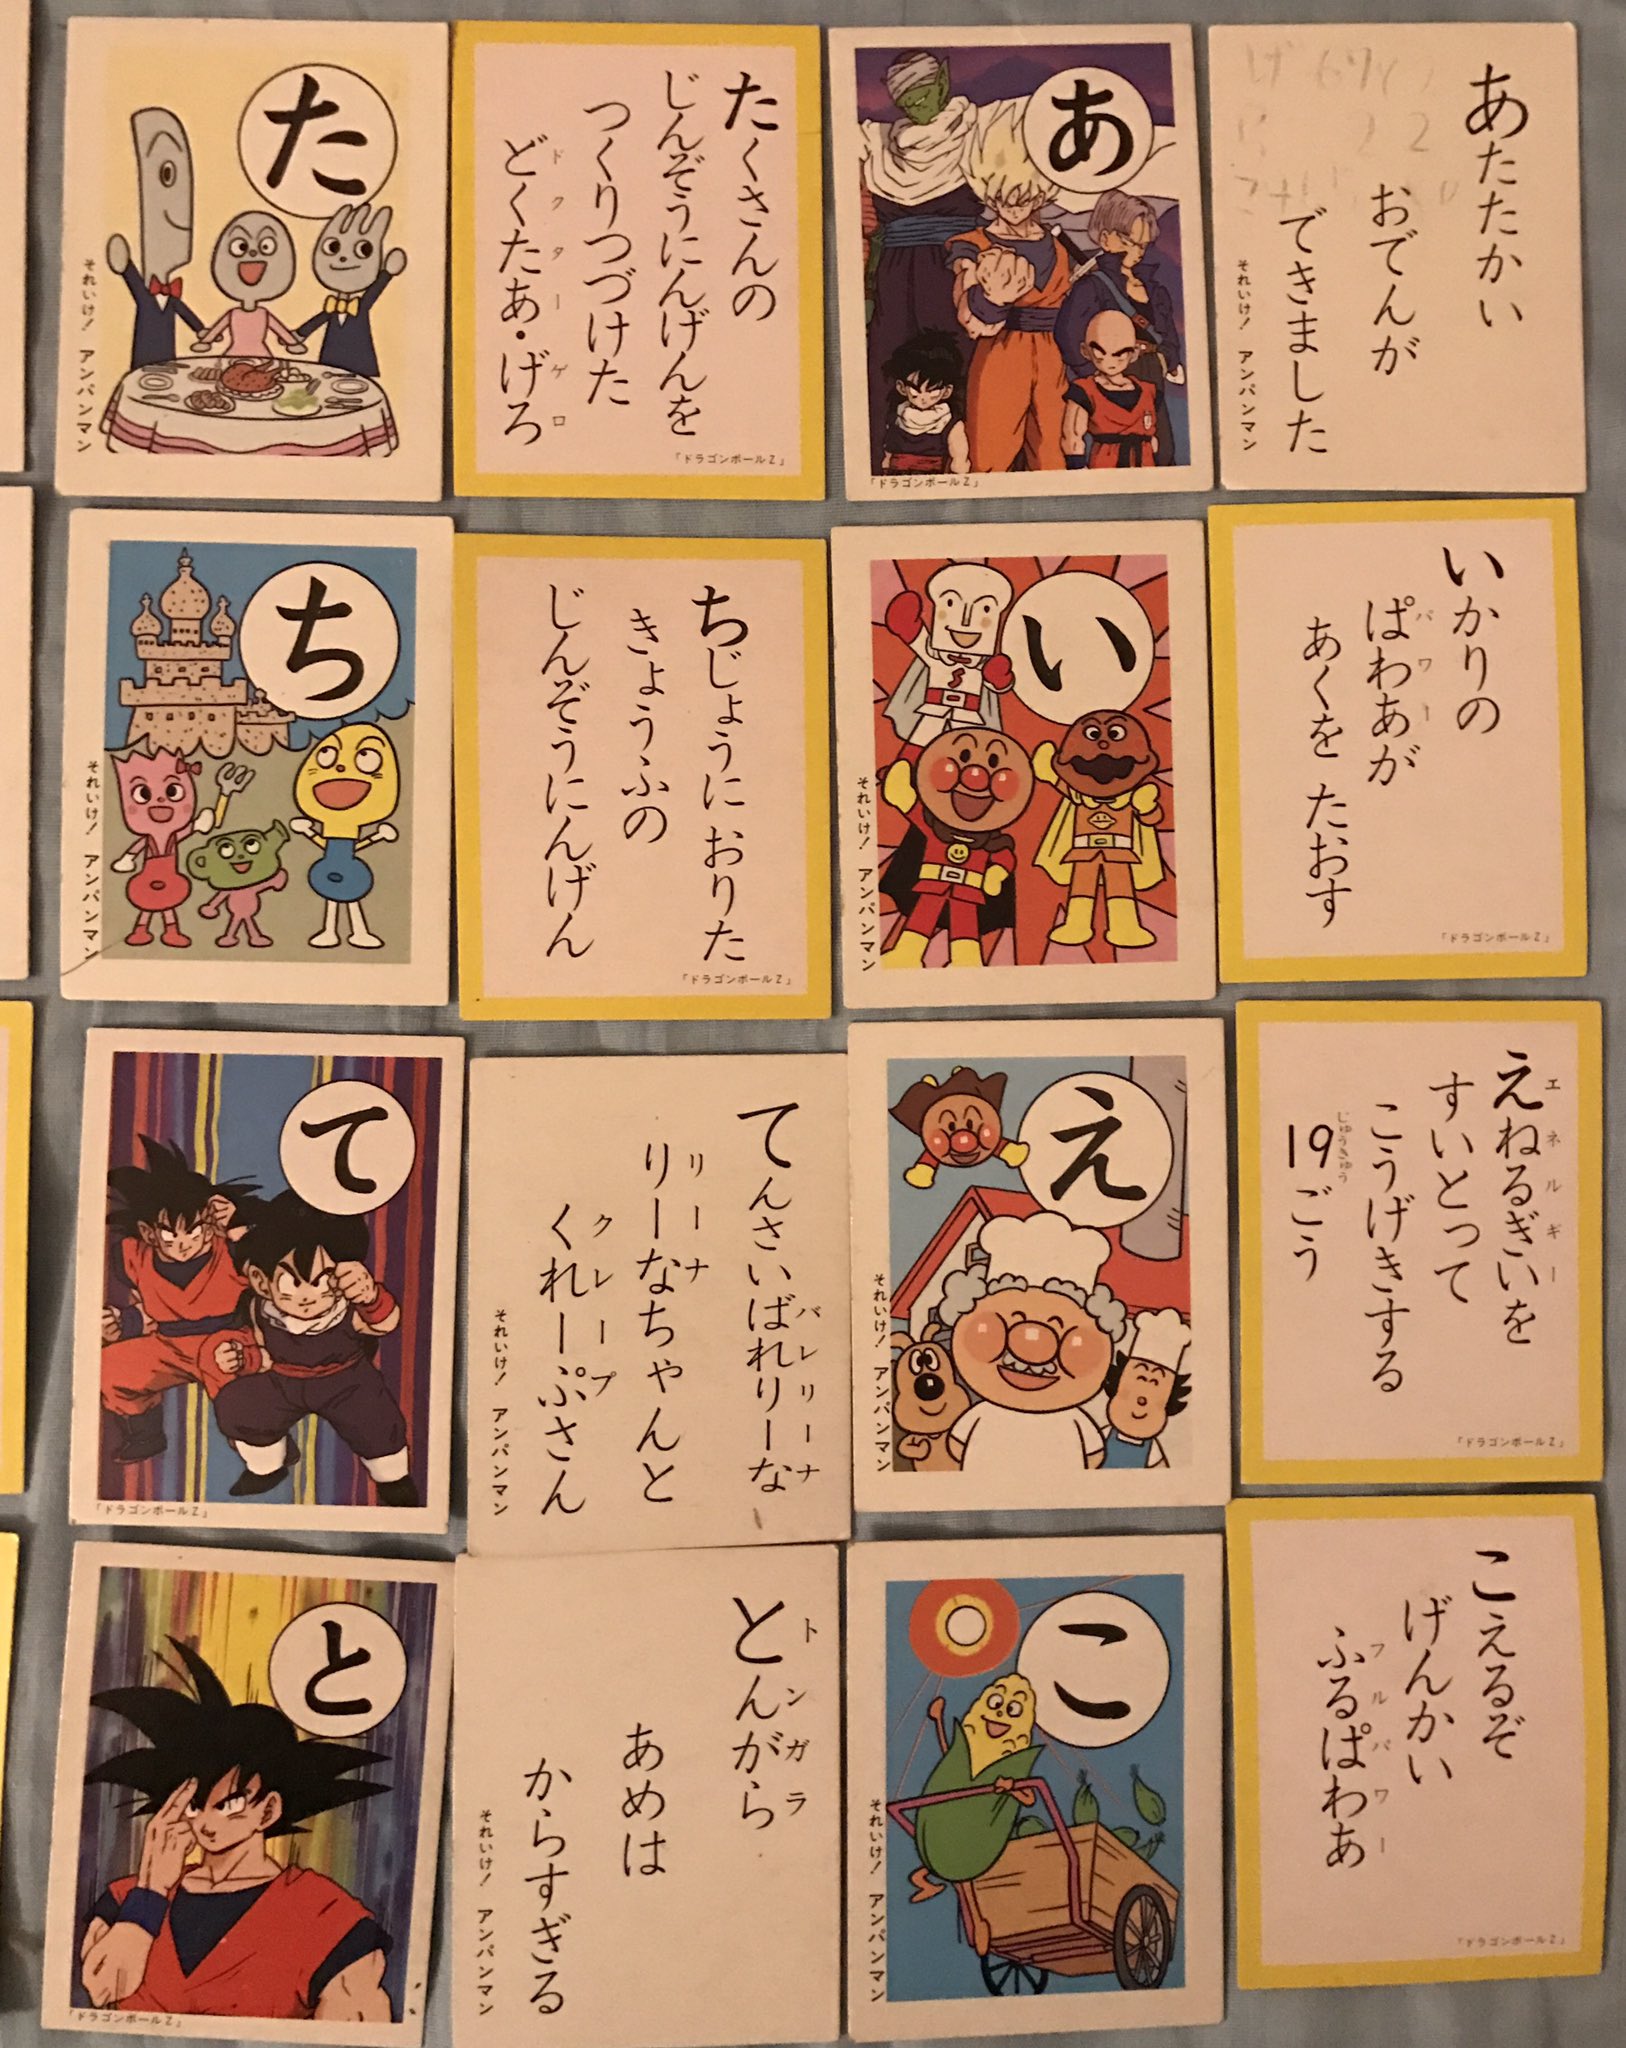 た
それいけ! アンパンマン
たくさんの
じんぞうにんげんを
つくりつづけた
どくたあ・げろ
ドクター ゲロ
「ドラゴンボールZ」
あ
「ドラゴンボールZ」
あたたかい
おでんが
できました
それいけ! アンパンマン
ち
それいけ! アンパンマン
ちじょうに おりた
きょうふの
じんぞうにんげん
「ドラゴンボールZ」
い
それいけ! アンパンマン
いかりの
ぱわあが
パワー
あくを たおす
「ドラゴンボールZ」
て
「ドラゴンボールZ」
てんさいばれりーな
バレリーナ
りーなちゃんと
リーナ
くれーぷさん
クレープ
それいけ! アンパンマン
え
それいけ! アンパンマン
えねるぎいを
エネルギー
すいとって
こうげきする
19ごう
じゅうきゅう
「ドラゴンボールZ」
と
「ドラゴンボールZ」
とんがら
トンガラ
あめは
からすぎる
それいけ! アンパンマン
こ
それいけ! アンパンマン
こえるぞ
げんかい
ふるぱわあ
フルパワー
「ドラゴンボールZ」